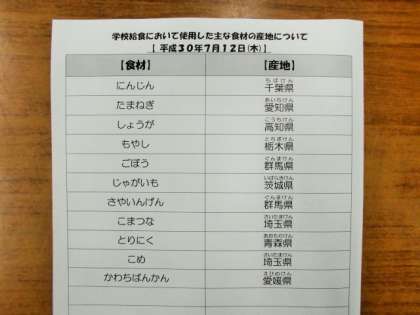 学校給食において使用した主な食材の産地について
【 平成３０年７月１２日(木) 】
【食材】 【産地】
にんじん 千葉県 ちばけん
たまねぎ 愛知県 あいちけん
しょうが 高知県 こうちけん
もやし 栃木県 とちぎけん
ごぼう 群馬県 ぐんまけん
じゃがいも 茨城県 いばらきけん
さやいんげん 群馬県 ぐんまけん
こまつな 埼玉県 さいたまけん
とりにく 青森県 あおもりけん
こめ 埼玉県 さいたまけん
かわちばんかん 愛媛県 えひめけん